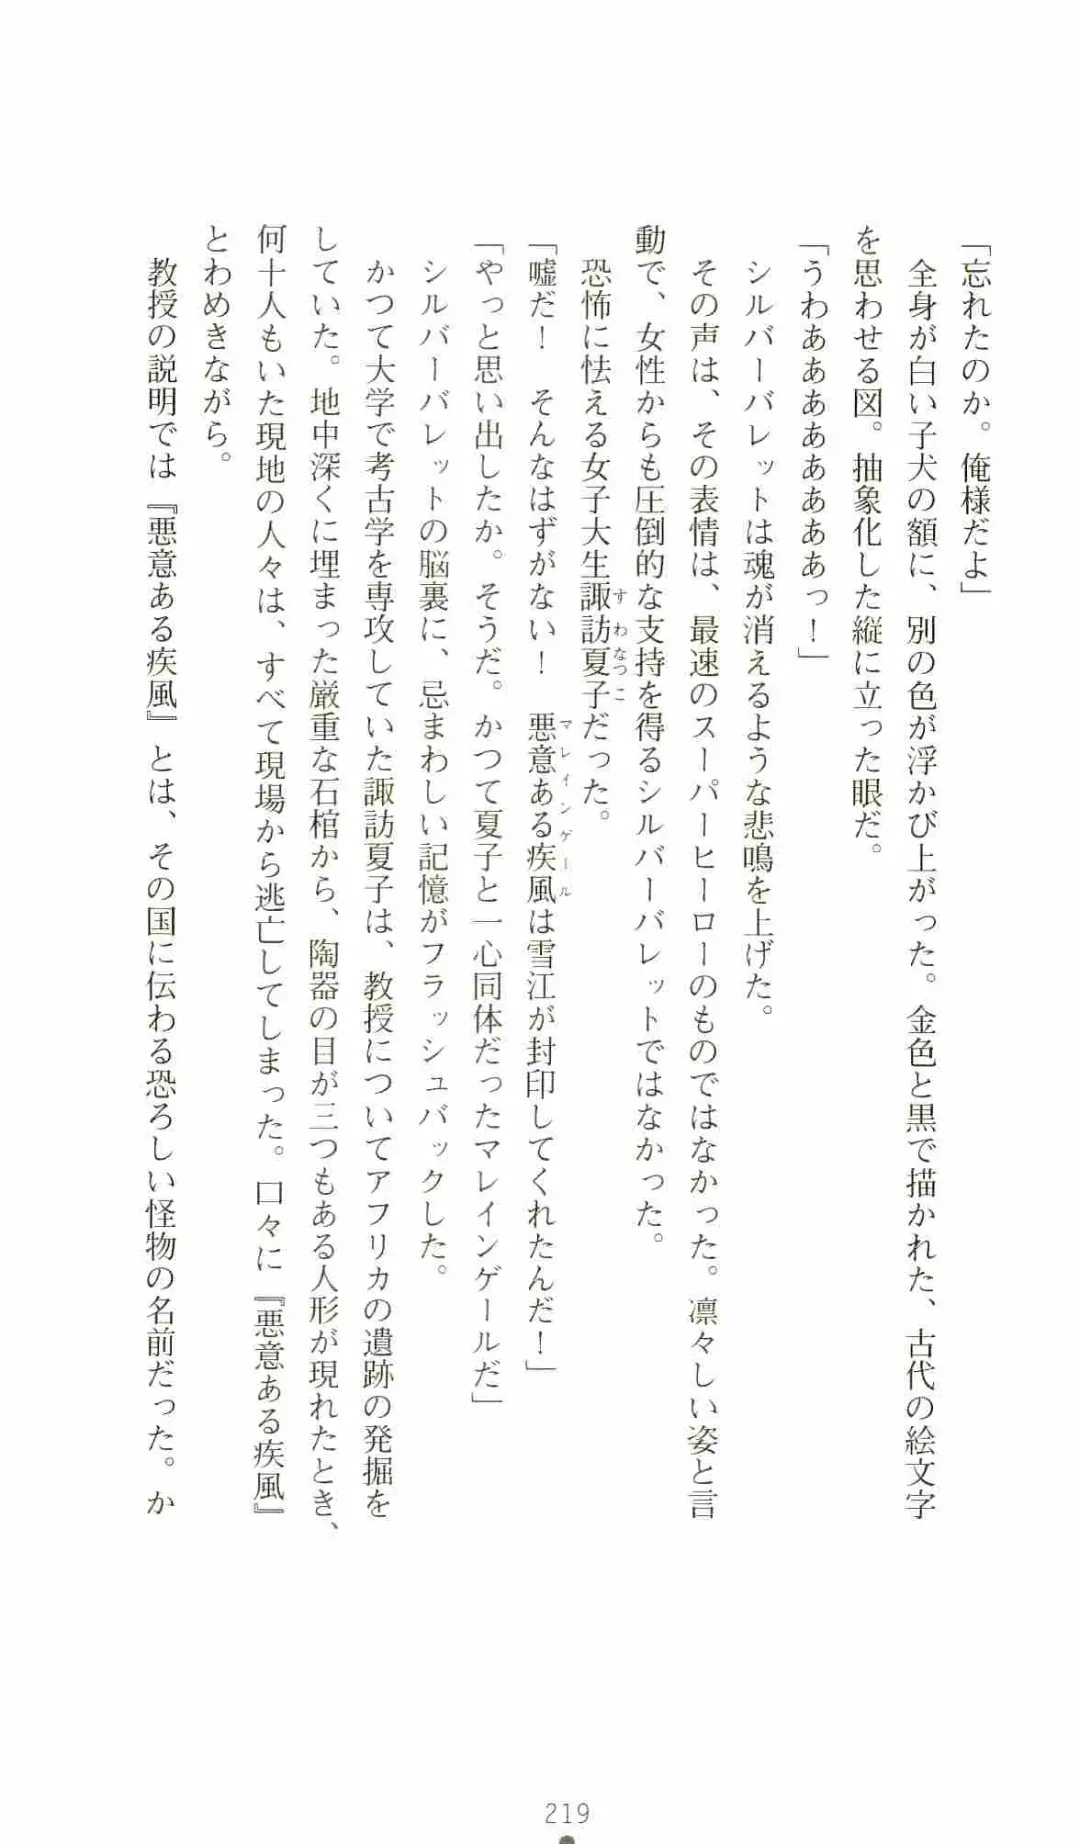 「忘れたのか。俺様だよ」
　全身が白い子犬の額に、別の色が浮かび上がった。金色と黒で描かれた、古代の絵文字
を思わせる図。抽象化した縦に立った眼だ。
「うわあああああああっ！」
　シルバーバレットは魂が消えるような悲鳴を上げた。
　その声は、その表情は、最速のスーパーヒーローのものではなかった。凛々しい姿と言
動で、女性からも圧倒的な支持を得るシルバーバレットではなかった。
　恐怖に怯える女子大生諏訪夏子だった。
すわなつこ
「嘘だ！　そんなはずがない！　悪意ある疾風は雪江が封印してくれたんだ！」
マレインゲール
「やっと思い出したか。そうだ。かつて夏子と一心同体だったマレインゲールだ」
　シルバーバレットの脳裏に、忌まわしい記憶がフラッシュバックした。
　かつて大学で考古学を専攻していた諏訪夏子は、教授についてアフリカの遺跡の発掘を
していた。地中深くに埋まった厳重な石棺から、陶器の目が三つもある人形が現れたとき、
何十人もいた現地の人々は、すべて現場から逃亡してしまった。口々に『悪意ある疾風』
とわめきながら。
　教授の説明では『悪意ある疾風』とは、その国に伝わる恐ろしい怪物の名前だった。か
219